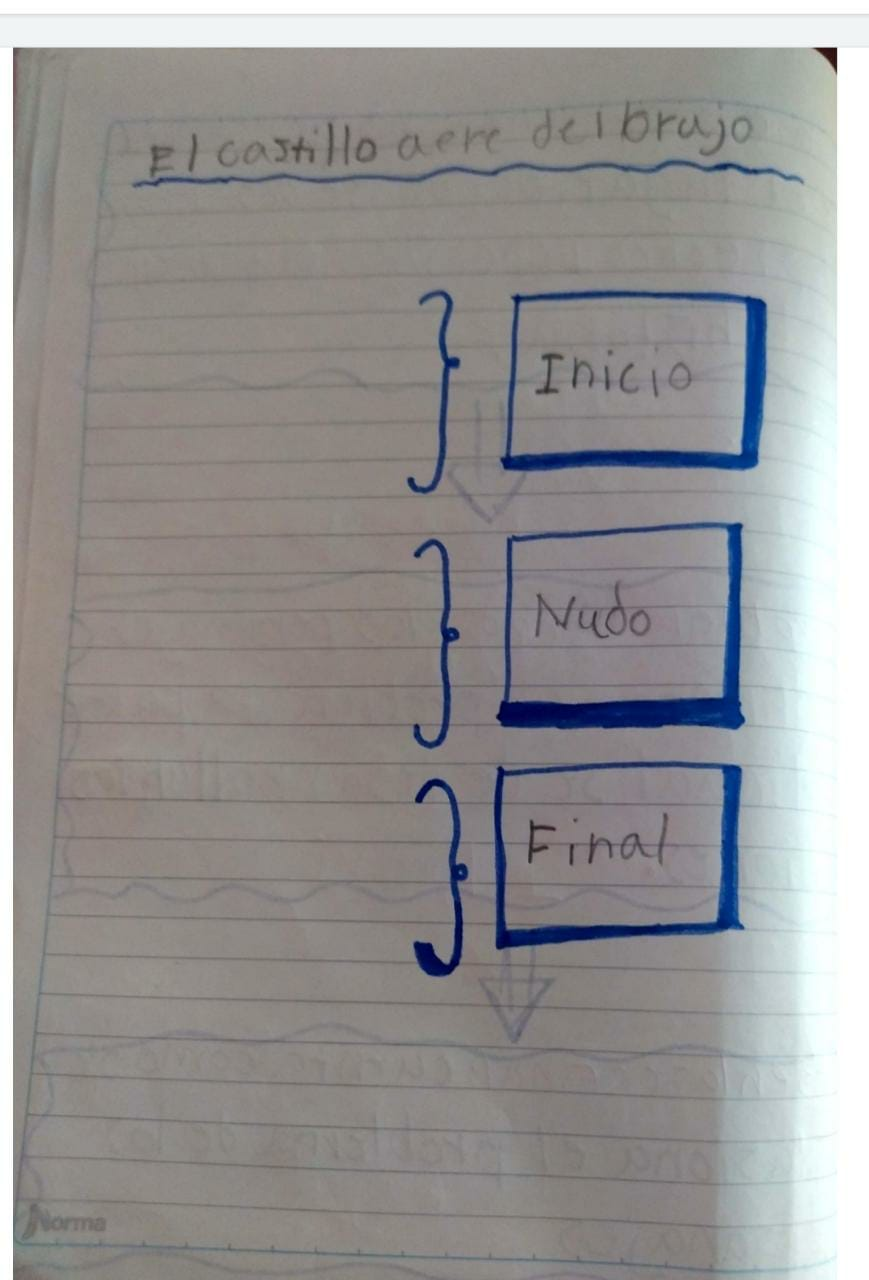 El castillo aere del brujo
Inicio
Nudo
Final
Norma